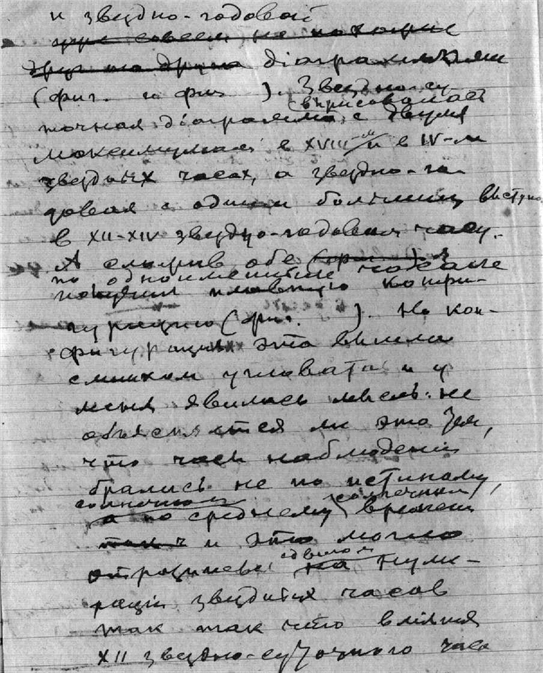 и звездно-годовой
диаграммами
(фиг. и фиг ). Звездно-су-
вырисовалась
точная діаграмма с двумя
максимумами в XVIII-м и в IV-м
звездных часах, а звездно-го-
довая с одним большим выступом
в XII-XIV звездно-годовом часу.
А сложив обе
по одноименным часам
получил плавную конфи-
гурацию (фиг. ). Но кон-
фигурация эта вышла
слишком угловата и у
меня явилась мысль: не
объясняется ли это тем,
что часы наблюдений
брались не по истинному,
солнечному
а по среднему времени
и это могло
отразиться на нуме-
рации звездных часов
так что
XII звездно-суточного часа